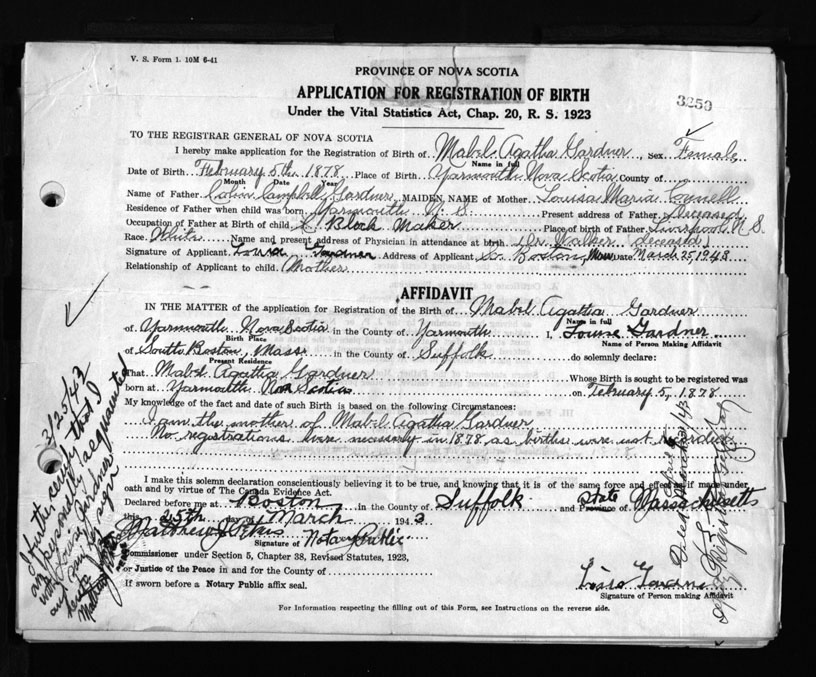 V. S. Form 1. 10M 6-41
PROVINCE OF NOVA SCOTIA
APPLICATION FOR REGISTRATION OF BIRTH
Under the Vital Statistics Act, Chap. 20, R. S. 1923
3250
TO THE REGISTRAR GENERAL OF NOVA SCOTIA
I hereby make application for the Registration of Birth of Mabel Agatha Gardner, Sex Female
Name in full
Date of Birth February 5th 1878 Place of Birth Yarmouth Nova Scotia County of
Month Date Year
Name of Father Campbell Gardner MAIDEN NAME of Mother Louisa Maria Connell
Residence of Father when child was born Yarmouth N. S. Present address of Father Deceased
Occupation of Father at Birth of child Block Maker Place of birth of Father Liverpool N.S.
Race White Name and present address of Physician in attendance at birth Dr. Walker (deceased)
Signature of Applicant Louise Gardner Address of Applicant So. Boston, Mass Date March 25, 1943
Relationship of Applicant to child Mother
AFFIDAVIT
IN THE MATTER of the application for Registration of the Birth of Mabel Agatha Gardner
Name in full
of Yarmouth Nova Scotia in the County of Yarmouth I, Louise Gardner
Birth Place Name of Person Making Affidavit
of South Boston, Mass in the County of Suffolk do solemnly declare:
Present Residence
That Mabel Agatha Gardner Whose Birth is sought to be registered was
born at Yarmouth Nova Scotia on February 5, 1878
My knowledge of the fact and date of such Birth is based on the following Circumstances:
I am the mother of Mabel Agatha Gardner
No registrations were necessary in 1878 as births were not recorded
I make this solemn declaration conscientiously believing it to be true, and knowing that it is of the same force and effect as if made under
oath and by virtue of The Canada Evidence Act.
Declared before me at Boston in the County of Suffolk and State Province of Massachusetts
this 25th day of March 1943
Notary Public
Signature of
Commissioner under Section 5, Chapter 38, Revised Statutes, 1923,
or Justice of the Peace in and for the County of
If sworn before a Notary Public affix seal.
Signature of Person making Affidavit
For Information respecting the filling out of this Form, see Instructions on the reverse side.
3/25/43
I further certify that I
am personally acquainted
with Louise Gardner
and saw her sign